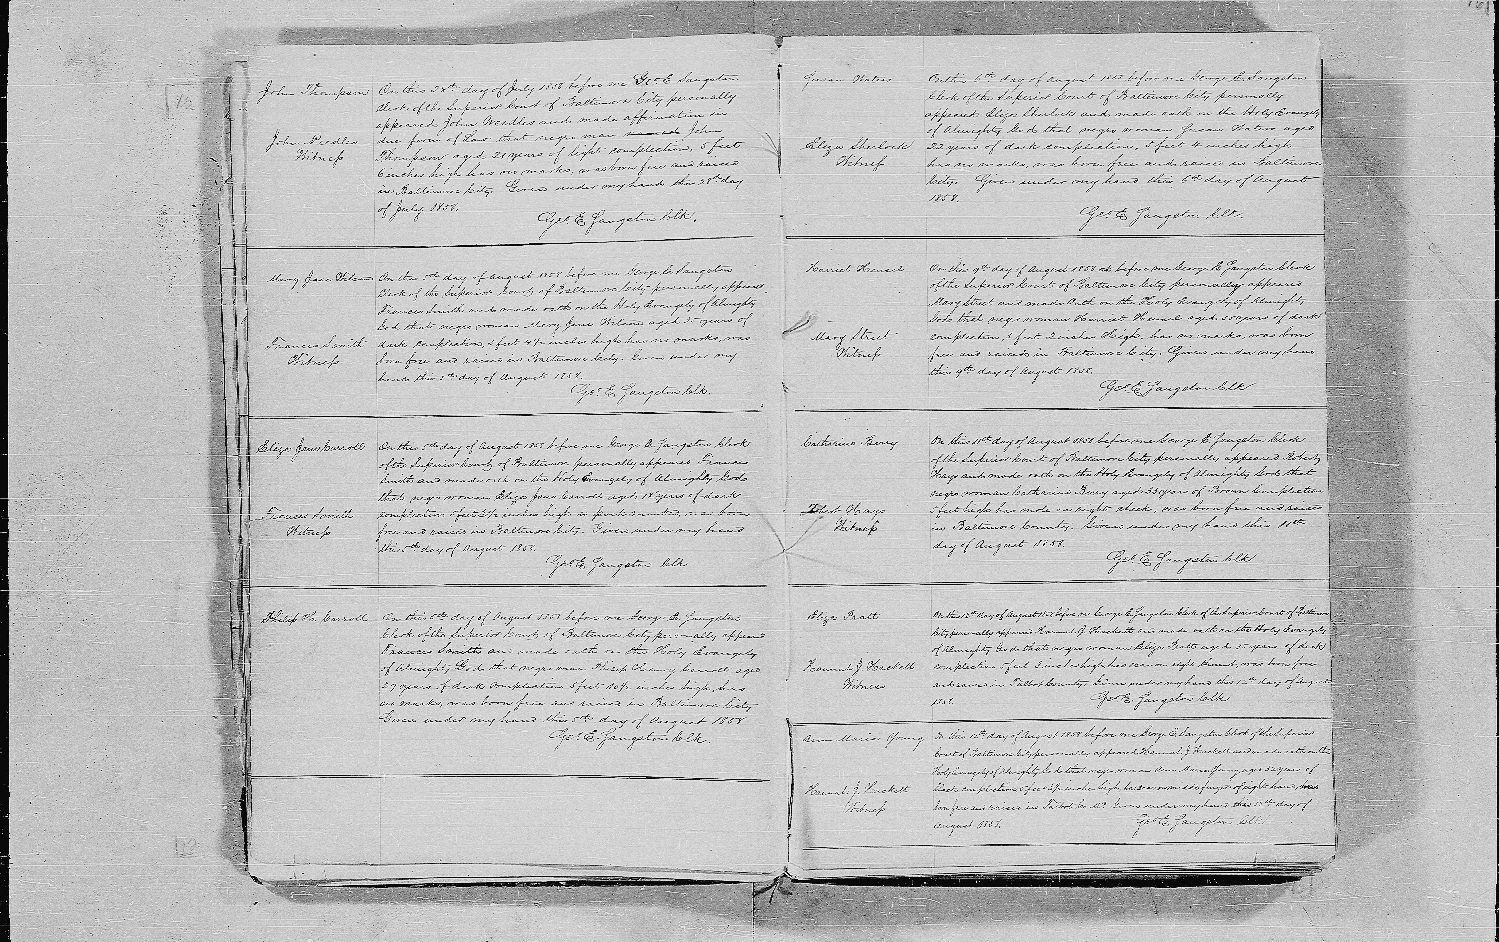 John Thompson
John Needles
Witness
On this 28th day of July 1858 before me Geo E Sangston
Clerk of the Superior Court of Baltimore City personally
appeared John Needles and made affirmation in
due form of Law that negro man named John
Thompson aged 21 years of light complection, 5 feet
6 inches high has no marks, was born free and raised
in Baltimore City Given under my hand this 28th day
of July 1858.
Geo. E. Sangston Clk.
Mary Jane Wilson
Francis Smith
Witness
On this 5th day of August 1858 before me George E. Sangston
Clerk of the Superior Court of Baltimore City personally appeared
Francis Smith and made oath on the Holy Evangely of Almighty
God that negro woman Mary Jane Wilson aged years of
dark complection, 5 feet inches high has no marks, was
born free and raised in Baltimore City. Given under my
hand this 5th day of August 1858.
Geo. E. Sangston Clk.
Eliza Jane Carroll
Francis Smith
Witness
On this 5th day of August 1858 before me George E. Sangston Clerk
of the Superior Court of Baltimore personally appeared Francis
Smith and made oath on the Holy Evangely of Almighty God
that negro woman Eliza Jane Carroll aged 18 years of dark
complection feet inches high, was born
free and raised in Baltimore City. Given under my hand
this 5th day of August 1858.
Geo. E. Sangston Clk
Philip H. Carroll
On this 5th day of August 1858 before me George E. Sangston
Clerk of the Superior Court of Baltimore City personally appeared
Francis Smith and made oath on the Holy Evangely
of Almighty God that negro man Philip Carroll aged
27 years of dark complection 5 feet inches high, has
no marks, was born free and raised in Baltimore City
Given under my hand this 5th day of August 1858
Geo. E. Sangston Clk.
Susan Waters
Eliza Sherlock
Witness
On this 6th day of August 1858 before me George E. Sangston
Clerk of the Superior Court of Baltimore City, personally
appeared Eliza Sherlock and made oath on the Holy Evangely
of Almighty God that negro woman Susan Waters aged
22 years of dark complection, 5 feet 4 inches high
has no marks, was born free and raised in Baltimore
City. Given under my hand this 6th day of August
1858.
Geo. E Sangston Clk.
Harriet Hensel
Mary Street
Witness
On this 9th day of August 1858 before me George E. Sangston Clerk
of the Superior Court of Baltimore City personally appeared
Mary Street and made Oath on the Holy Evangely of Almighty
God that negro woman Harriet Hensel aged years of dark
complection, 5 feet 2 inches High, has no marks, was born
free and raised in Baltimore City. Given under my hand
this 9th day of August 1858.
Geo. E. Sangston Clk
Catharine Berry
Hays
Witness
On this 11th day of August 1858 before me George E. Sangston Clerk
of the Superior Court of Baltimore City, personally appeared
Hays and made oath on the Holy Evangely of Almighty God that
negro woman Catharine Berry aged 33 years of Brown Complection
feet high has mole on right cheek, was born free and raised
in Baltimore County. Given under my hand this 11th
day of August 1858.
Geo. E. Sangston Clk
Eliza Pratt
Hannah J. Hackett
Witness
On this 12th day of August 1858 before me George E. Sangston Clerk of the Superior Court of Baltimore
City personally appeared Hannah J. Hackett and made oath on the Holy Evangely
of Almighty God that negro woman Eliza Pratt aged years of dark
complection feet 2 inches high has scar on right thumb, was born free
and raised in Talbot County. Given under my hand this 12th day of August
1858.
Geo. E. Sangston Clk
Ann Maria Young
Hannah J. Hackett
Witness
On this 12th day of August 1858 before me George E. Sangston Clerk of the Superior
Court of Baltimore City personally appeared Hannah J Hackett and made oath on the
Holy Evangely of Almighty God that negro woman Ann Maria Young aged years of
dark complection feet inches high has scar on finger of right hand, was
born free and raised in Talbot Co Md. Given under my hand this 12th day of
August 1858.
Geo. E. Sangston Clk.